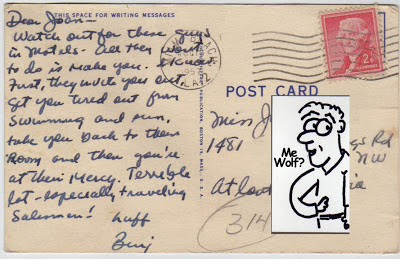 THIS SPACE FOR WRITING MESSAGES
Dear Joan-
Watch out for these guys
in Motels. All they want
to do is make you. I know
First, they invite you out,
get you tired out from
Swimming and sun,
take you back to their
Room and then you're
at their Mercy. Terrible
lot - especially traveling
Salesmen!
Luff
POST CARD
2¢
Miss J
1481
gs Rd
NW
Atlan
ia
314
Me
Wolf?